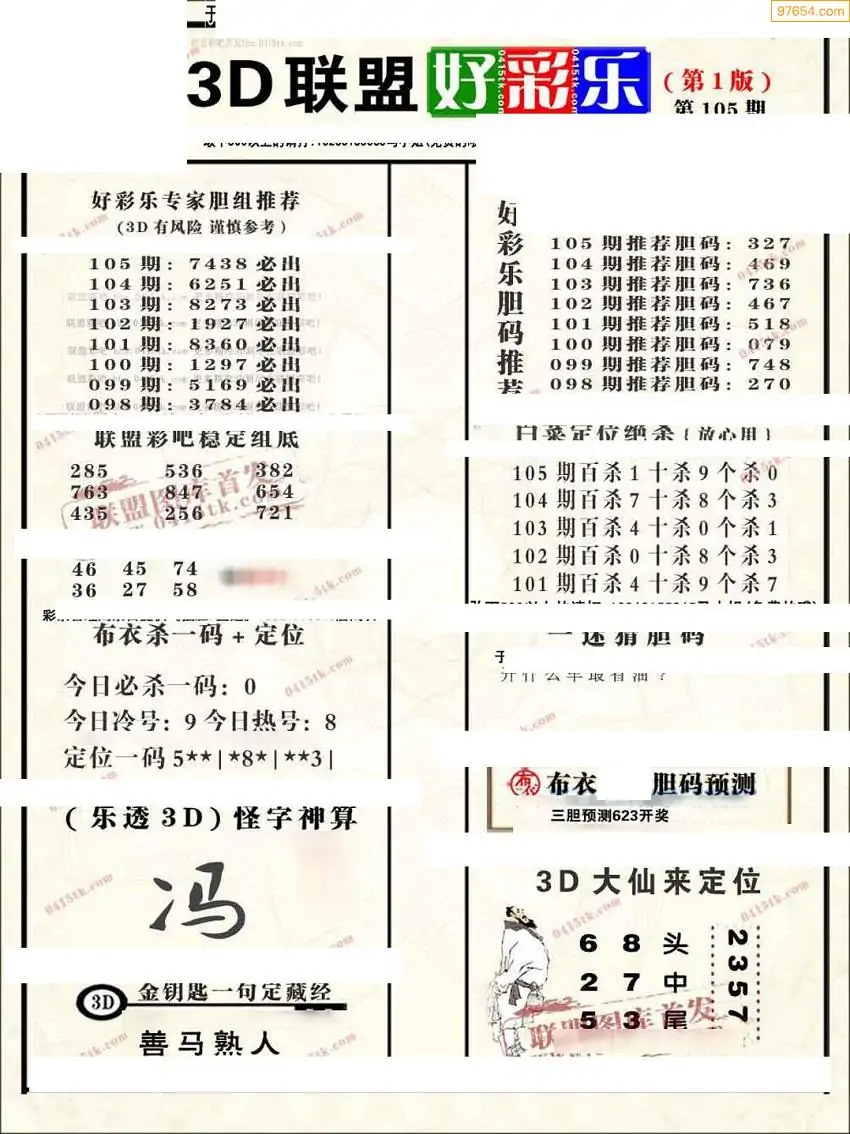 97654.com
3D联盟 好彩乐 (第1版)
第105期
好彩乐专家胆组推荐
(3D有风险 谨慎参考)
105期: 7438必出
104期: 6251必出
103期: 8273必出
102期: 1927必出
101期: 8360必出
100期: 1297必出
099期: 5169必出
098期: 3784必出
联盟彩吧稳定组底
285 536 382
763 847 654
435 256 721
46 45 74
36 27 58
布衣杀一码+定位
今日必杀一码: 0
今日冷号: 9 今日热号: 8
定位一码5**|*8*|**3|
(乐透3D)怪字神算
冯
3D 金钥匙一句定藏经
善马熟人
好彩乐胆码推荐
105期推荐胆码: 327
104期推荐胆码: 469
103期推荐胆码: 736
102期推荐胆码: 467
101期推荐胆码: 518
100期推荐胆码: 079
099期推荐胆码: 748
098期推荐胆码: 270
白菜定位绝杀(放心用)
105期百杀1十杀9个杀0
104期百杀7十杀8个杀3
103期百杀4十杀0个杀1
102期百杀0十杀8个杀3
101期百杀4十杀9个杀7
一迷猜胆码
布衣 胆码预测
三胆预测623开奖
3D大仙来定位
6 8 头
2 7 中
5 3 尾
2357
联盟图库首发
0415tk.com